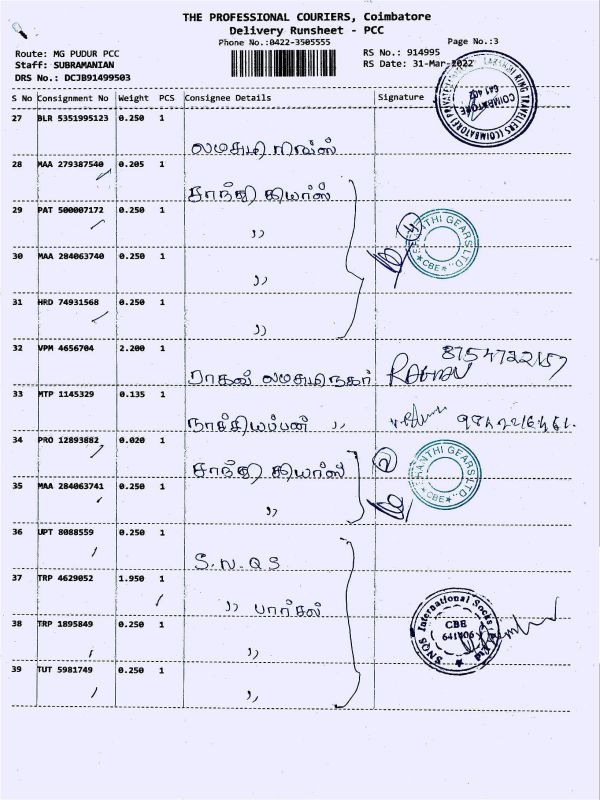 THE PROFESSIONAL COURIERS, Coimbatore
Delivery Runsheet - PCC
Phone No.:0422-3505555
Page No.:3
Route: MG PUDUR PCC
RS No.: 914995
Staff: SUBRAMANIAN
RS Date: 31-Mar-2022
DRS No.: DCJB91499503
S No Consignment No Weight PCS Consignee Details Signature
27 BLR 5351995123 0.250 1
28 MAA 279387540 0.205 1
சாந்தி கியர்ஸ்
29 PAT 500007172 0.250 1
,,
30 MAA 284063740 0.250 1
,,
31 HRD 74931568 0.250 1
,,
32 VPM 4656704 2.200 1
ராகவ் லட்சுமிநகர் RAGHAV
33 MTP 1145329 0.135 1
நாச்சியப்பன் ,,
34 PRO 12893882 0.020 1
சாந்தி கியர்ஸ் 2
35 MAA 284063741 0.250 1
,,
36 UPT 8088559 0.250 1
S.N.Q.S
37 TRP 4629052 1.950 1
,, பார்சல்
38 TRP 1895849 0.250 1
,,
39 TUT 5981749 0.250 1
,,
LAKSHMI RING TRAVELLERS (COIMBATORE) PRIVATE
COIMBATORE
641 402
SHANTHI GEARS LTD.
CBE
SHANTHI GEARS LTD.
CBE
SNQS International Socks
CBE
641006